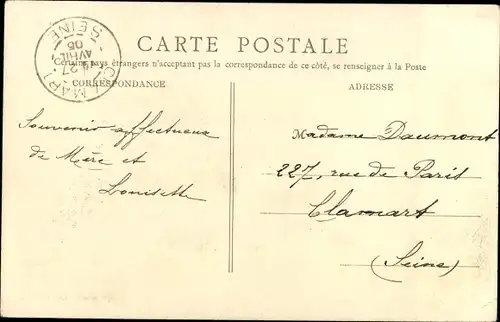 CARTE POSTALE
Certains pays étrangers n'acceptant pas la correspondance de ce côté, se renseigner à la Poste
CORRESPONDANCE
ADRESSE
CLAMART
27
AVRIL
05
SEINE
Souvenir affectueux
de Mère et
Louisette
Madame Daumont
227, rue de Paris
Clamart
(Seine)